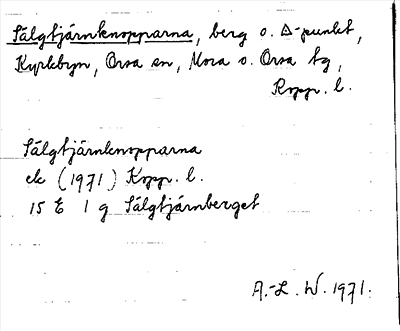 Sälgtjärnknopparna, berg o. Δ-punkt,
Kyrkbyn, Orsa sn, Mora o. Orsa tg,
Kopp. l.
Sälgtjärnknopparna
ek (1971) Kopp. l.
15 E 1 g Sälgtjärnberget
A.-L. W. 1971.